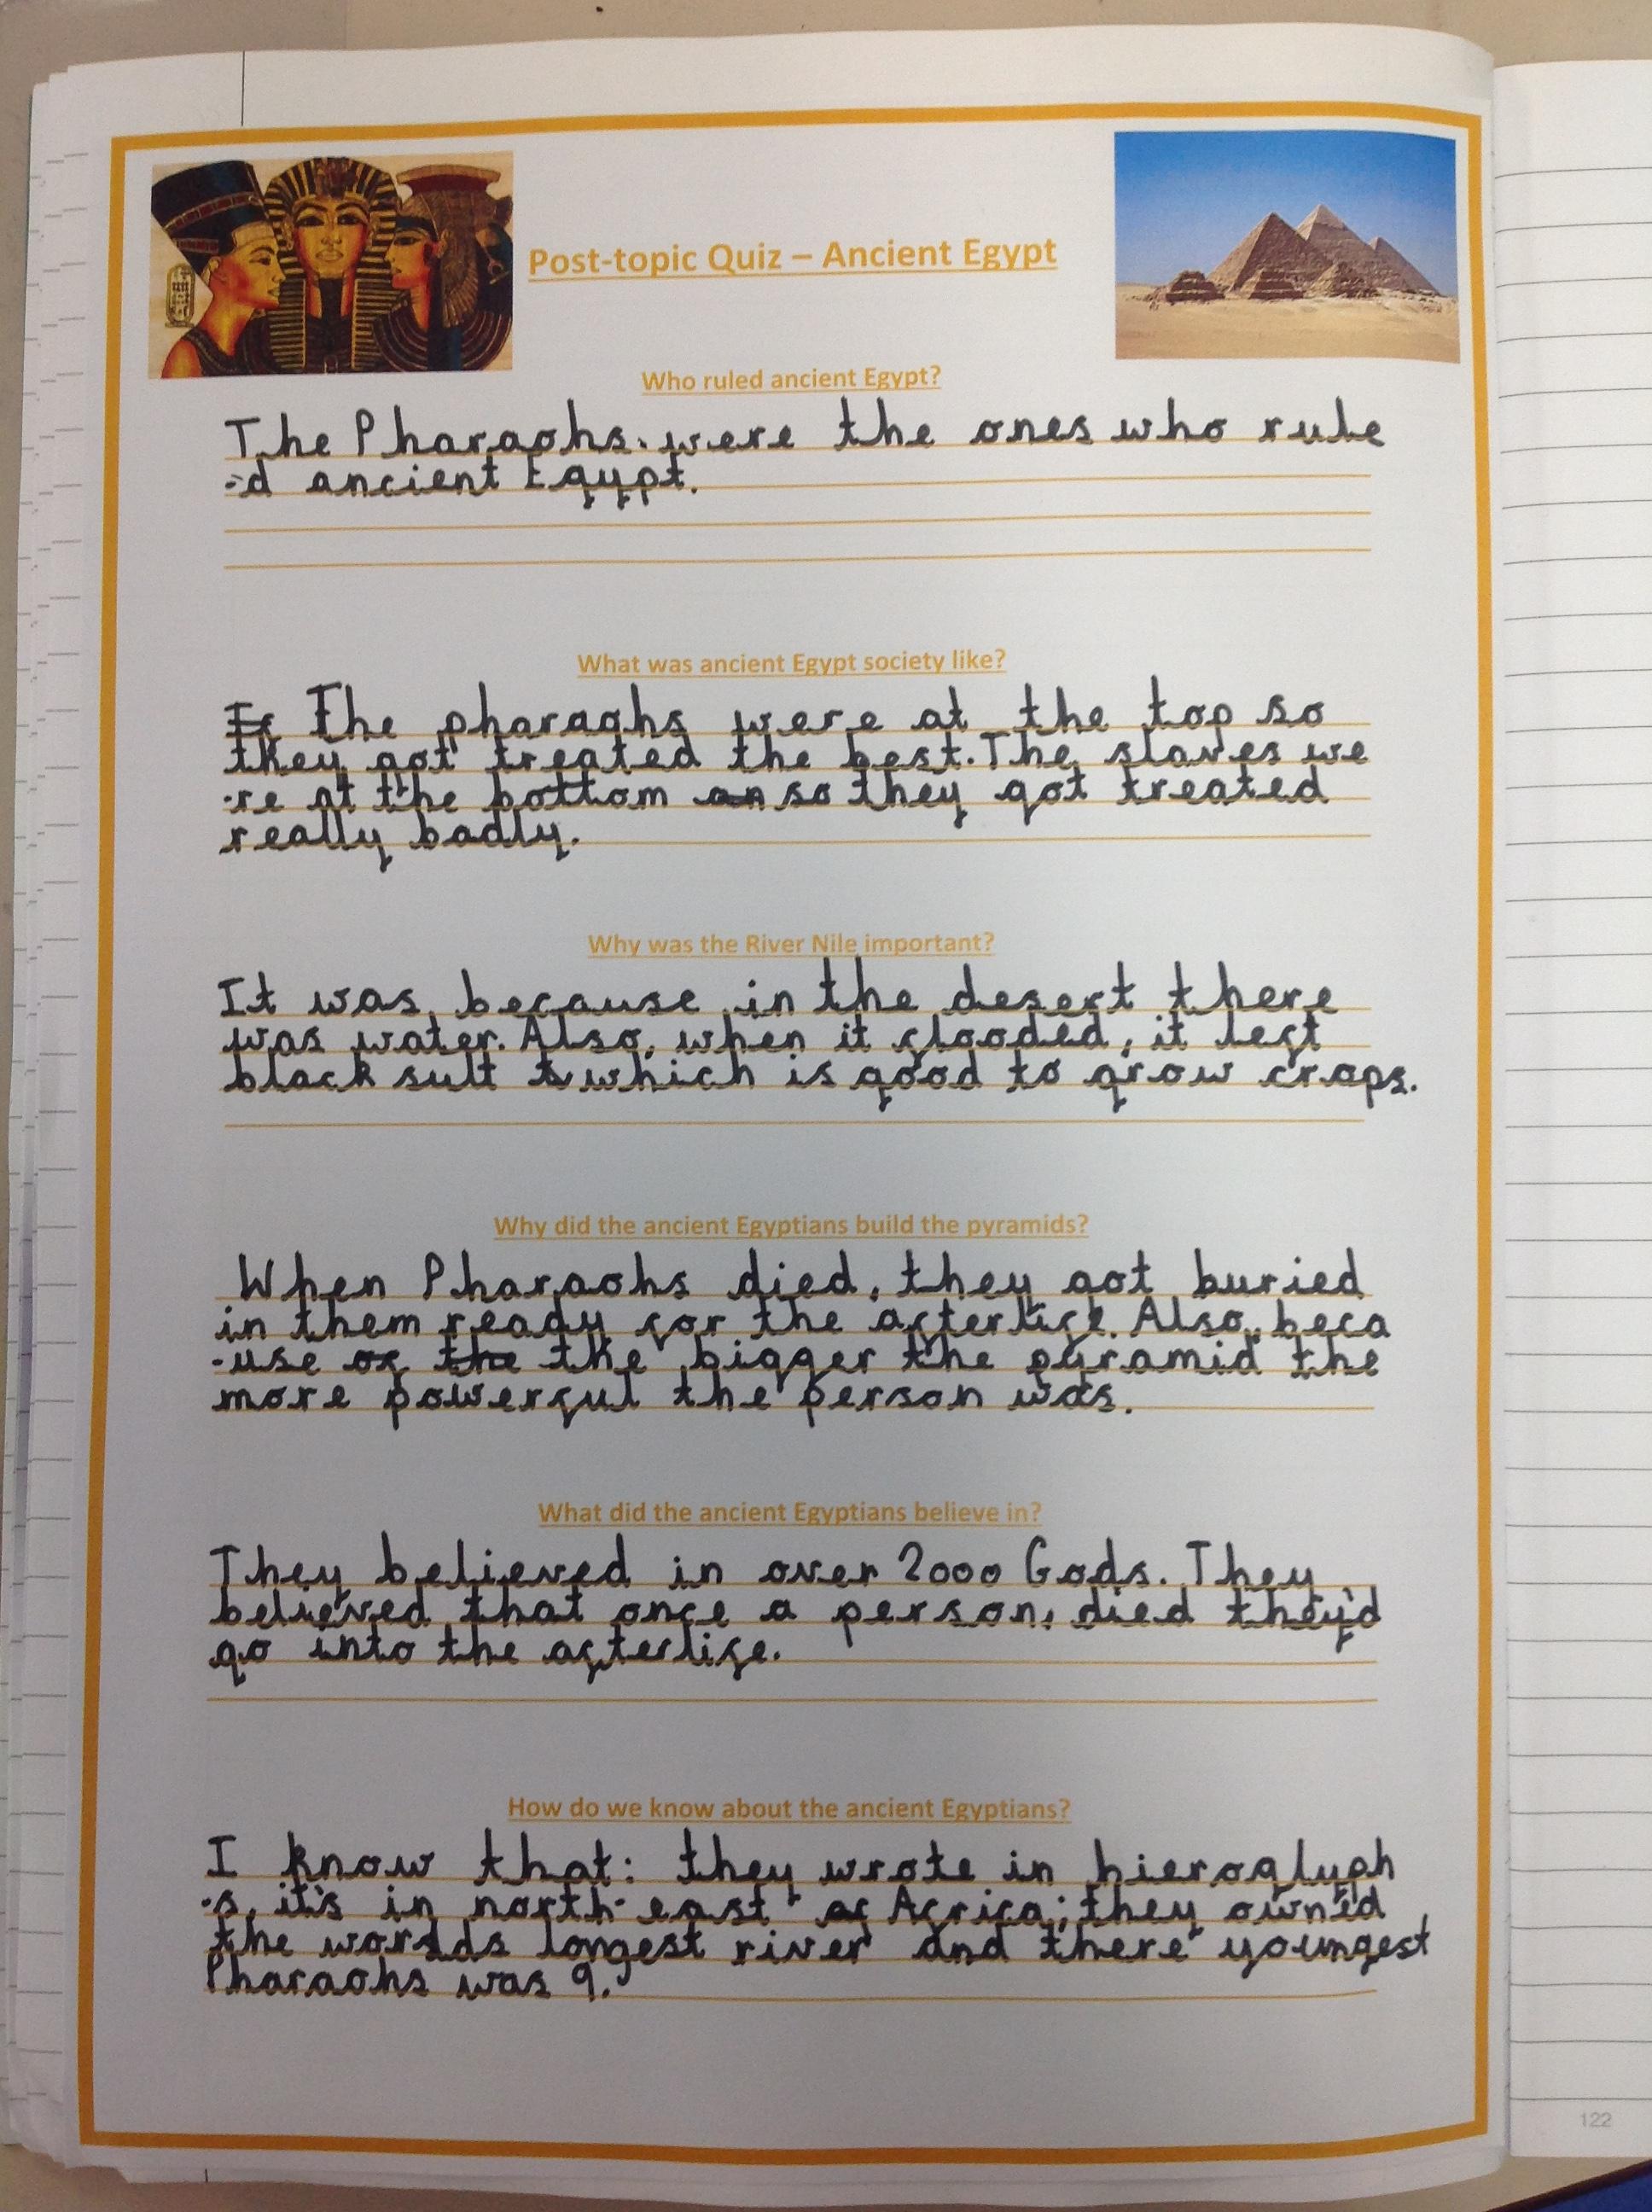 Post-topic Quiz – Ancient Egypt
Who ruled ancient Egypt?
The Pharaohs. were the ones who rule
-d ancient Egypt.
What was ancient Egypt society like?
The pharaohs were at the top so
they got treated the best. The slaves we
-re at the bottom so they got treated
really badly.
Why was the River Nile important?
It was because in the desert there
was water. Also, when it flooded, it left
black sult which is good to grow crops.
Why did the ancient Egyptians build the pyramids?
When Pharaohs died, they got buried
in them ready for the afterlife. Also, beca
-use of the the bigger the pyramid the
more powerful the person was.
What did the ancient Egyptians believe in?
They believed in over 2000 Gods. They
believed that once a person, died they'd
go into the afterlife.
How do we know about the ancient Egyptians?
I know that: they wrote in hieroglyph
-s, it's in north-east of Africa; they owned
the worlds longest river and there youngest
Pharaohs was 9.
122